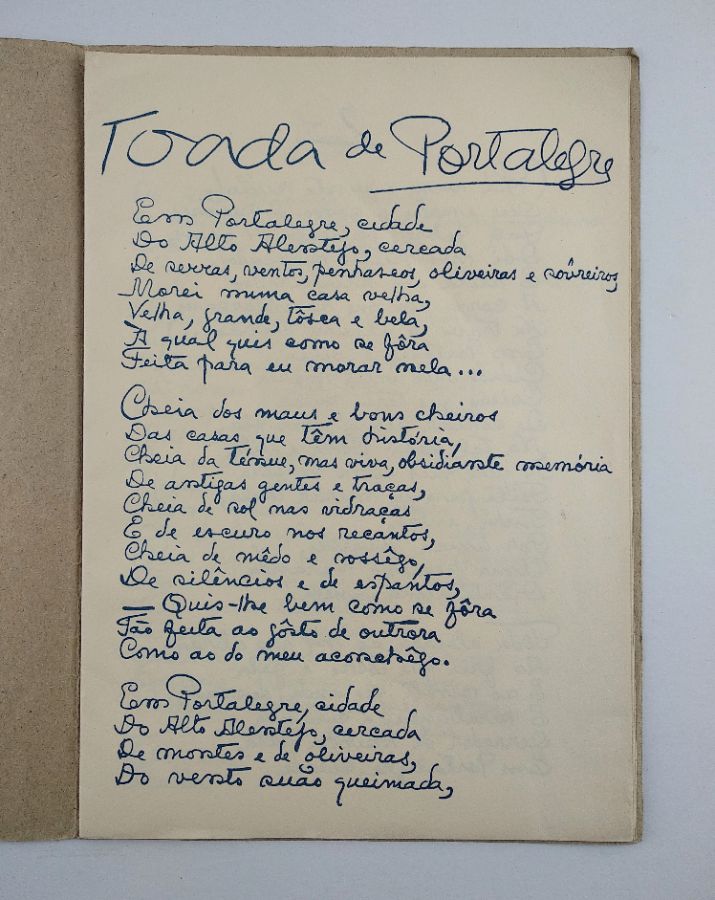 Toada de Portalegre
Em Portalegre, cidade
Do Alto Alentejo, cercada
De serras, ventos, penhascos, oliveiras e sôbreiros,
Morei numa casa velha,
Velha, grande, tôsca e bela,
À qual quis como se fôra
Feita para eu morar nela...
Cheia dos maus e bons cheiros
Das casas que têm história,
Cheia da ténue, mas viva, obsidiante memória
De antigas gentes e traças,
Cheia de sol nas vidraças
E de escuro nos recantos,
Cheia de mêdo e sossêgo,
De silêncios e de espantos,
— Quis-lhe bem como se fôra
Tão feita ao gôsto de outrora
Como ao do meu aconchêgo.
Em Portalegre, cidade
Do Alto Alentejo, cercada
De montes e de oliveiras,
Do vento suão queimada,